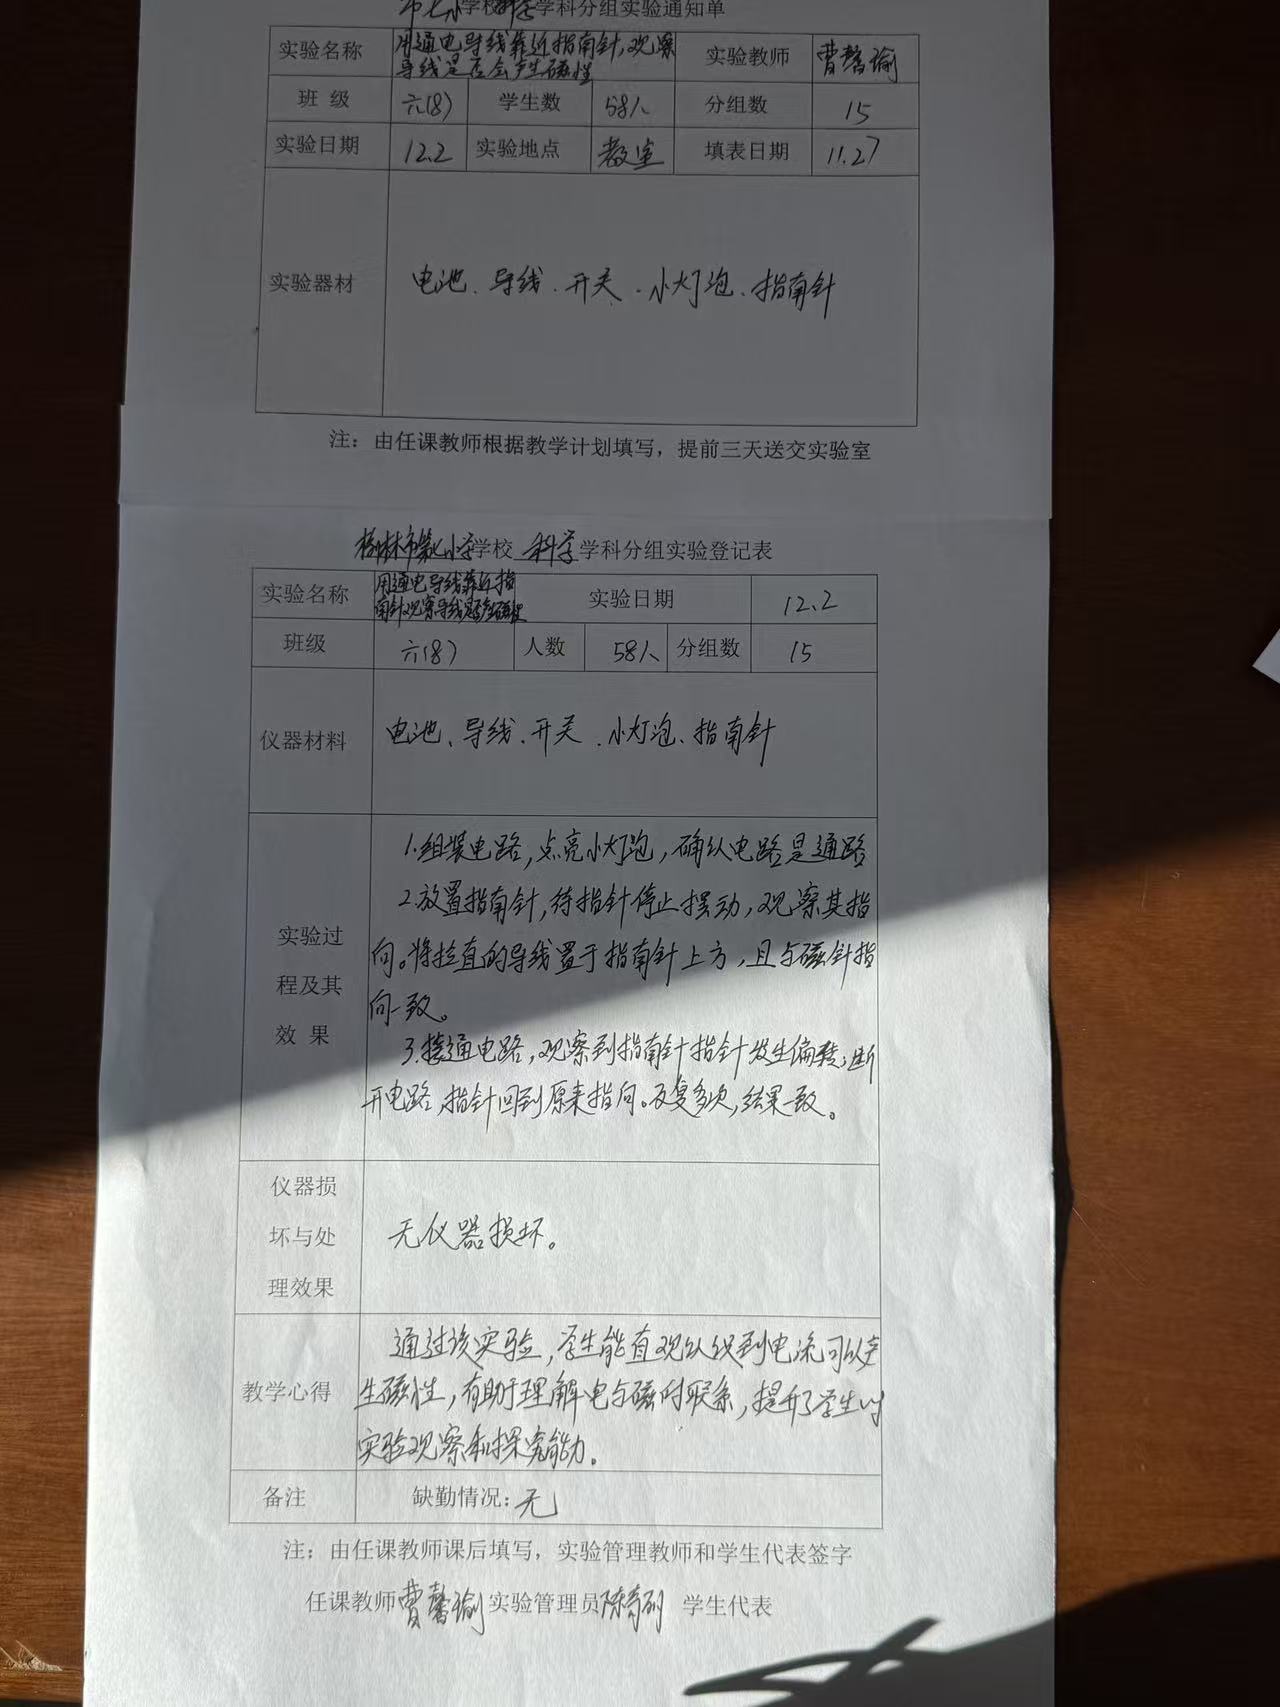 市七小学校科学学科分组实验通知单
实验名称 用通电导线靠近指南针,观察导线是否会产生磁性 实验教师 曹馨瑜
班 级 六(8) 学生数 58人 分组数 15
实验日期 12.2 实验地点 教室 填表日期 11.27
实验器材 电池、导线、开关、小灯泡、指南针
注：由任课教师根据教学计划填写，提前三天送交实验室
榆林市第七小学学校 科学 学科分组实验登记表
实验名称 用通电导线靠近指南针观察导线是否产生磁性 实验日期 12.2
班级 六(8) 人数 58人 分组数 15
仪器材料 电池、导线、开关、小灯泡、指南针
实验过程及其效 果
1.组装电路,点亮小灯泡,确认电路是通路
2.放置指南针,待指针停止摆动,观察其指
向。将拉直的导线置于指南针上方,且与磁针指
向一致。
3.接通电路,观察到指南针指针发生偏转;断
开电路,指针回到原来指向。反复多次,结果一致。
仪器损坏与处理效果 无仪器损坏。
教学心得
通过该实验,学生能直观认识到电流可以产
生磁性,有助于理解电与磁的联系,提升了学生的
实验观察和探究能力。
备注 缺勤情况：无
注：由任课教师课后填写，实验管理教师和学生代表签字
任课教师曹馨瑜 实验管理员 学生代表